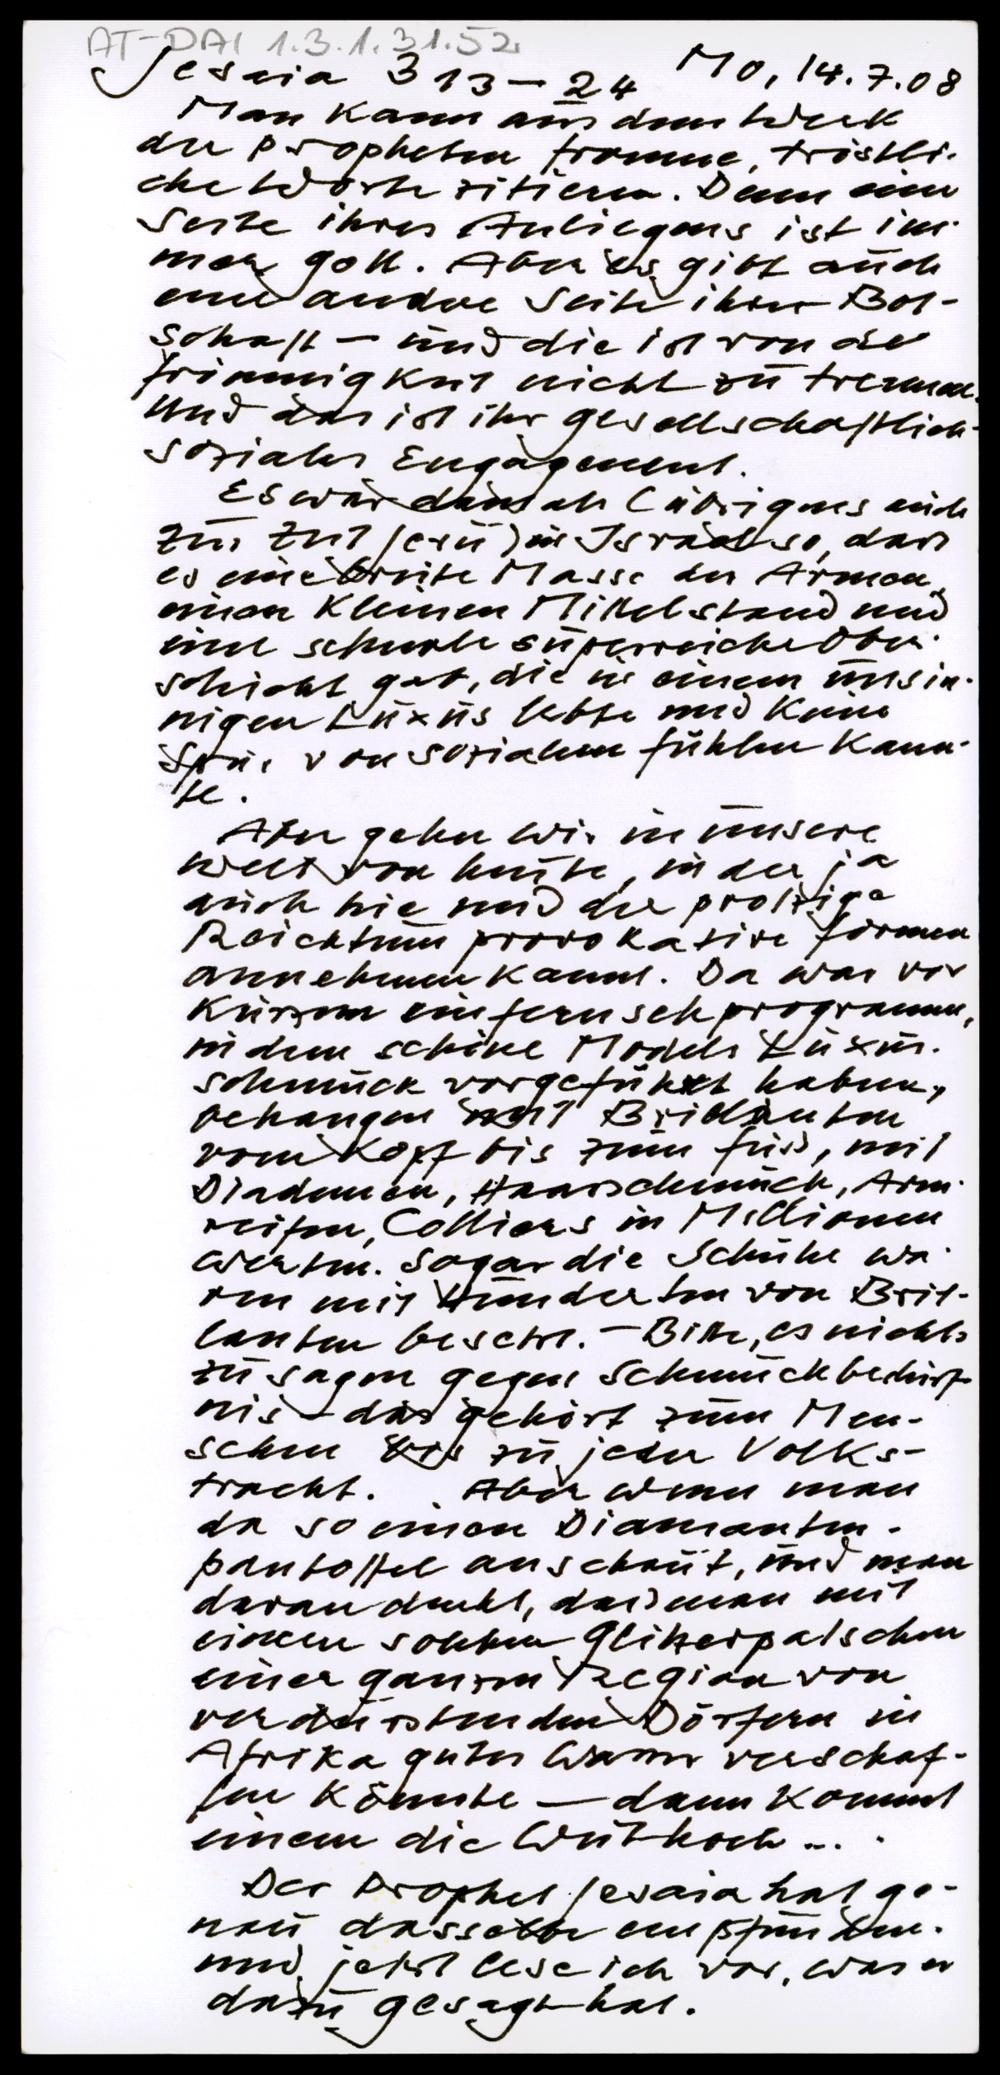 AT-DAI 1.3.1.31.52.
Jesaia 3 13-24 Mo, 14.7.08
Man kann aus dem Werk
der Propheten fromme, tröstli-
che Worte zitieren. Denn eine
Seite ihres Anliegens ist im-
mer Gott. Aber es gibt auch
eine andere Seite ihrer Bot-
schaft - und die ist von der
Frömmigkeit nicht zu trennen.
Und das ist ihr gesellschaftlich-
soziales Engagement.
Es war damals übrigens auch
zur Zeit Jesu in Israel so, dass
es eine breite Masse der Armen,
einen kleinen Mittelstand und
eine schmale superreiche Ober-
schicht gab, die in einem unsin-
nigen Luxus lebte und keine
Spur von sozialem Fühlen kann-
te.
Aber gehn wir in unsere
Welt von heute, in der ja
auch hie und da protzige
Reichtum provokative Formen
annehmen kann. Da war vor
Kurzem ein Fernsehprogramm,
in dem schöne Models Luxus-
schmuck vorgeführt haben,
behangen mit Brillanten
vom Kopf bis zum Fuss, mit
Diademen, Haarschmuck, Arm-
reifen, Colliers in Millionen
werten. Sogar die Schuhe wa-
ren mit Hunderten von Bril-
lanten besetzt. - Bitte, es nichts
zu sagen gegen Schmuckbedürf-
nis - das gehört zum Men-
schen bis zu jeder Volks-
tracht. Aber wenn man
da so einen Diamanten-
pantoffel anschaut, und man
daran denkt, dass man mit
einem solchen Glitzerpatschen
einer ganzen Region von
verdurstenden Dörfern in
Afrika gutes Wasser verschaf-
fen könnte - dann kommt
einem die Wut hoch ...
Der Prophet Jesaia hat ge-
nau dasselbe empfunden.
und jetzt lese ich vor, was er
dazu gesagt hat.